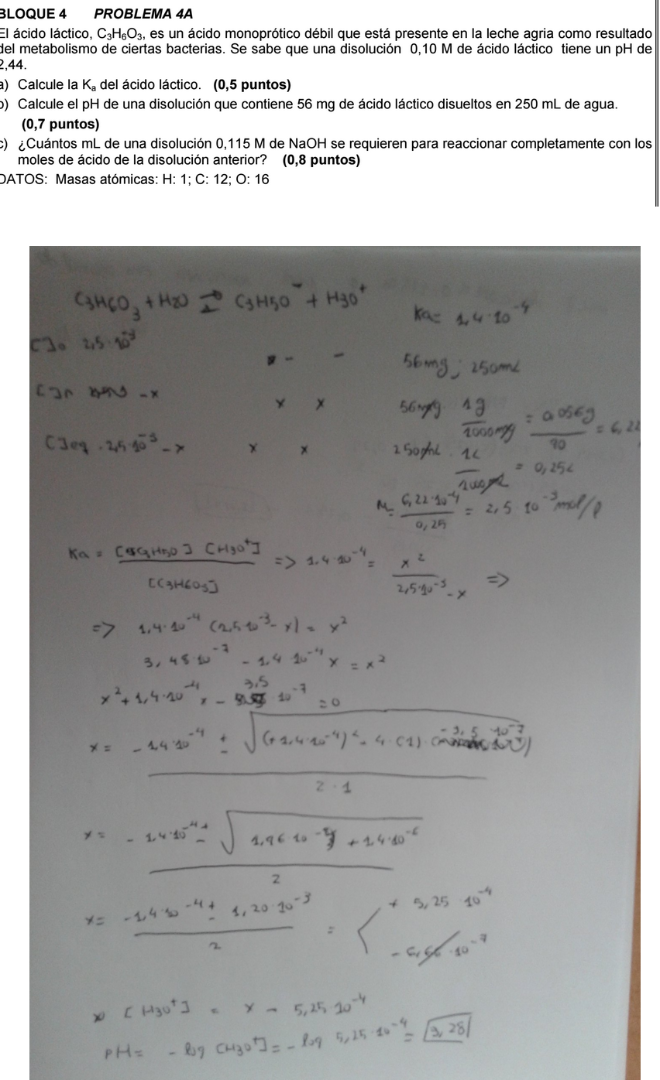 BLOQUE 4 PROBLEMA 4A
El ácido láctico, C₃H₆O₃, es un ácido monoprótico débil que está presente en la leche agria como resultado
del metabolismo de ciertas bacterias. Se sabe que una disolución 0,10 M de ácido láctico tiene un pH de
2,44.
a) Calcule la Kₐ del ácido láctico. (0,5 puntos)
b) Calcule el pH de una disolución que contiene 56 mg de ácido láctico disueltos en 250 mL de agua.
(0,7 puntos)
c) ¿Cuántos mL de una disolución 0,115 M de NaOH se requieren para reaccionar completamente con los
moles de ácido de la disolución anterior? (0,8 puntos)
DATOS: Masas atómicas: H: 1; C: 12; O: 16
C3H6O3 + H2O ⇄ C3H5O⁻ + H3O⁺
Ka= 1,4·10⁻⁴
[ ]o 2,5·10⁻³ - -
56mg ; 250mL
[ ]n -x x x
56mg 1g / 1000mg = 0,056g / 90 = 6,22
[ ]eq 2,5·10⁻³-x x x
250mL 1L = 0,25L
M= 6,22·10⁻⁴ / 0,25 = 2,5 10⁻³ mol/l
Ka = [C3H5O] [H3O⁺] / [C3H6O3] => 1,4·10⁻⁴ = x² / 2,5·10⁻³-x =>
=> 1,4·10⁻⁴ (2,5·10⁻³-x) = x²
10⁻⁷ - 1,4 10⁻⁴ x = x²
x² + 1,4·10⁻⁴ x - 3,5 10⁻⁷ = 0
x = -1,4·10⁻⁴ ± √(+1,4·10⁻⁴)² - 4·(1)·(-3,5·10⁻⁷) / 2·1
x = -1,4·10⁻⁴ ± √1,96·10⁻⁸ + 1,4·10⁻⁶ / 2
x = -1,4·10⁻⁴ ± 1,20·10⁻³ / 2 = + 5,25 10⁻⁴
[H3O⁺] = x = 5,25 10⁻⁴
pH = -log [H3O⁺] = -log 5,25·10⁻⁴ = 3,28